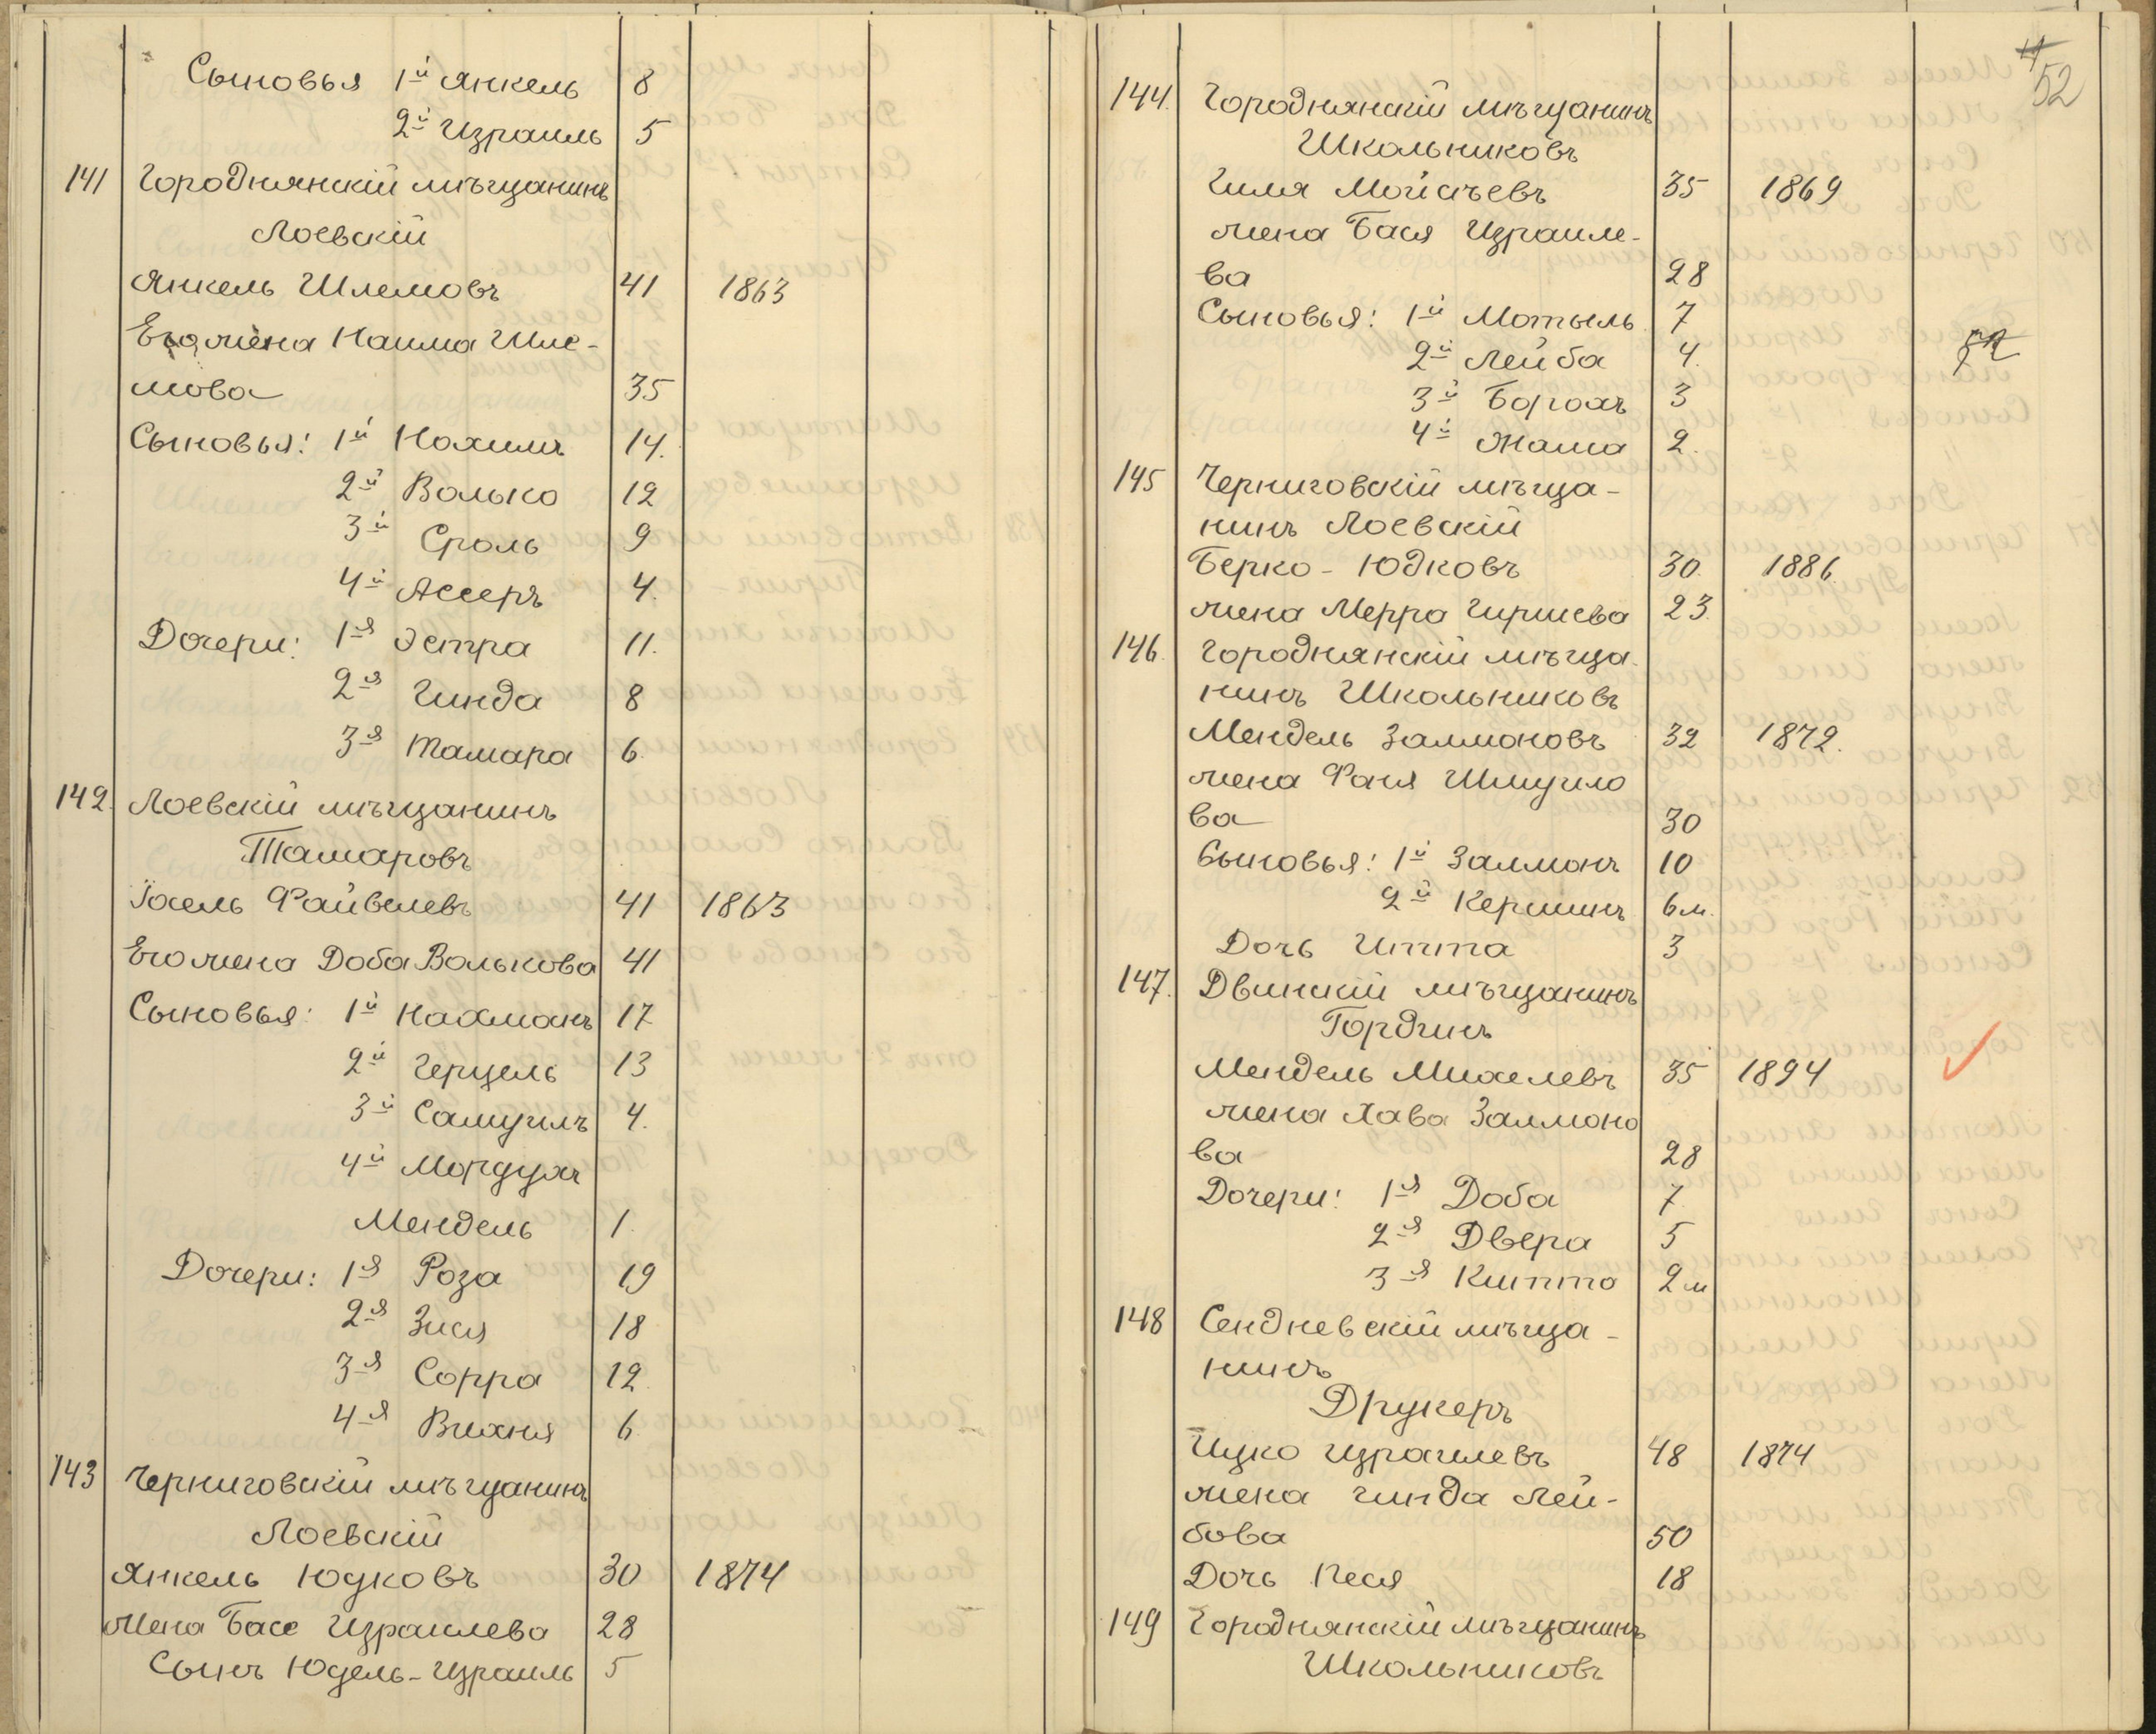 Сыновья 1й Янкель 8
2й Израиль 5
141 Городнянскій мѣщанинъ
Лоевскій
Янкель Шлемовъ 41 1863
Его жена Нашма Шле-
мова 35
Сыновья: 1й Нохимъ 14.
2й Волько 12
3й Сроль 9
4й Ассеръ 4.
Дочери: 1я Эстра 11.
2я Гинда 8
3я Тамара 6
142. Лоевскій мѣщанинъ
Тамаровъ
Іосель Файвелевъ 41 1863
Его жена Доба Волькова 41
Сыновья: 1й Нахманъ 17
2й Герцель 13
3й Самуилъ 4.
4й Мордухъ
Мендель 1.
Дочери: 1я Роза 19
2я Зися 18
3я Сорра 12
4я Вихня 6
143 Черниговскій мѣщанинъ
Лоевскій
Янкель Юдковъ 30 1874
Жена Басе Израилева 28
Сынъ Юдель-Израиль 5
52
144. Городнянскій мѣщанинъ
Школьниковъ
Гиля Мойсѣевъ 35 1869
жена Бася Израиле-
ва 28
Сыновья: 1й Мотыль 7
2й Лейба 4.
3й Борохъ 3
4й Жама 2.
145 Черниговскій мѣща-
нинъ Лоевскій
Берко-Юдковъ 30. 1886
жена Мерра Гиршева 23.
146. Городнянскій мѣща-
нинъ Школьниковъ
Мендель Залмановъ 32 1872.
жена Фаня Шмуило
ва 30
Сыновья: 1й Залманъ 10
2й Кершинъ 6 м.
Дочь Итта 3
147. Двинскій мѣщанинъ
Гордгинъ
Мендель Михелевъ 35 1894
жена Хава Залмано
ва 28
Дочери: 1я Доба 7.
2я Двера 5
3я Китта 2 м
148 Сендневскій мѣща-
нинъ
Друкеръ
Ицко Израилевъ 48 1874
жена Гинда Лей-
бова 50
Дочь Песя 18
149 Городнянскій мѣщанинъ
Школьниковъ